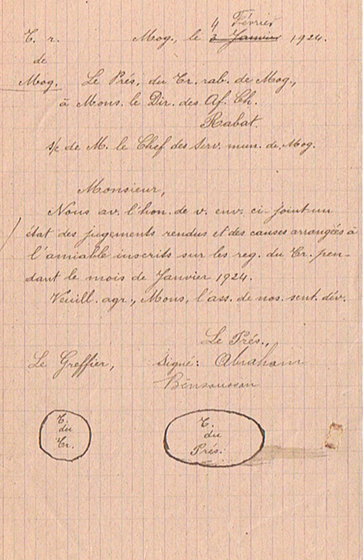 4 Février
T. r. Mog., le 3 Janvier 1924.
de
Mog. Le Prés. du Tr. rab. de Mog.,
à Mons. le Dir. des Af. Ch.
Rabat.
s/c de M. le Chef des Serv. mun. de Mog.
Monsieur,
Nous av. l'hon. de v. env. ci-joint un
état des jugements rendus et des causes arrangées à
l'amiable inscrits sur les reg. du Tr. pen-
dant le mois de Janvier 1924.
Veuill. agr., Mons, l'ass. de nos. sent. dév.
Le Prés.,
Le Greffier, Signé: Abraham
Bensoussan
T.
du
Gr.
T.
du
Prés.